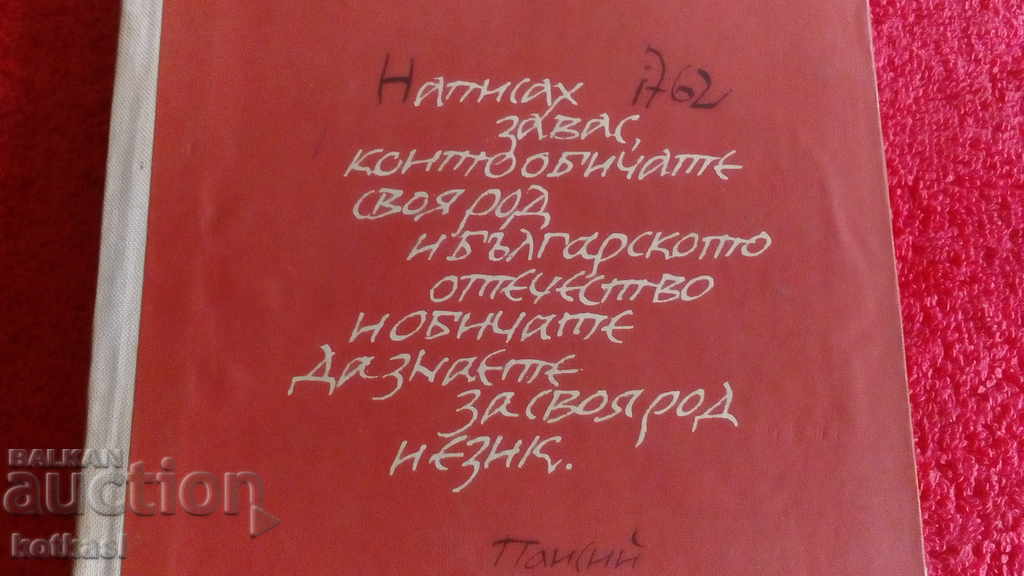 Написах 1762
за вас,
които обичате
своя род
и българското
отечество
и обичате
да знаете
за своя род
и език.
Паисий
BALKAN
auction
kotkasl